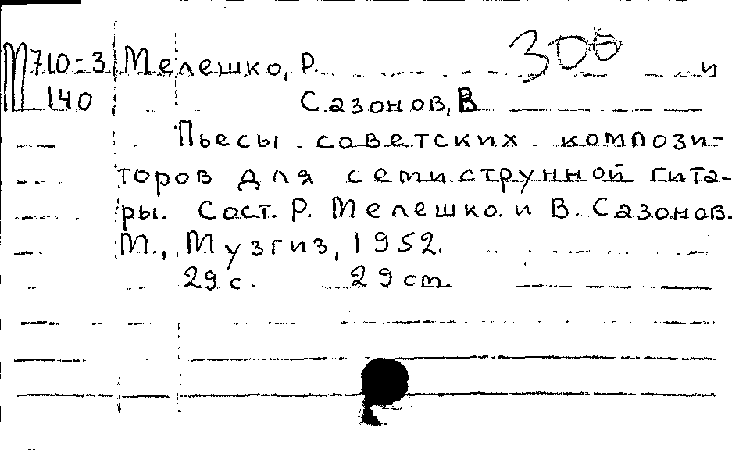 М710-3 Мелешко, Р. 300 и
140 Сазонов, В
Пьесы советских компози-
торов для семиструнной гита-
ры. Сост. Р. Мелешко и В. Сазонов.
М., Музгиз, 1952.
29 с. 29 cm.